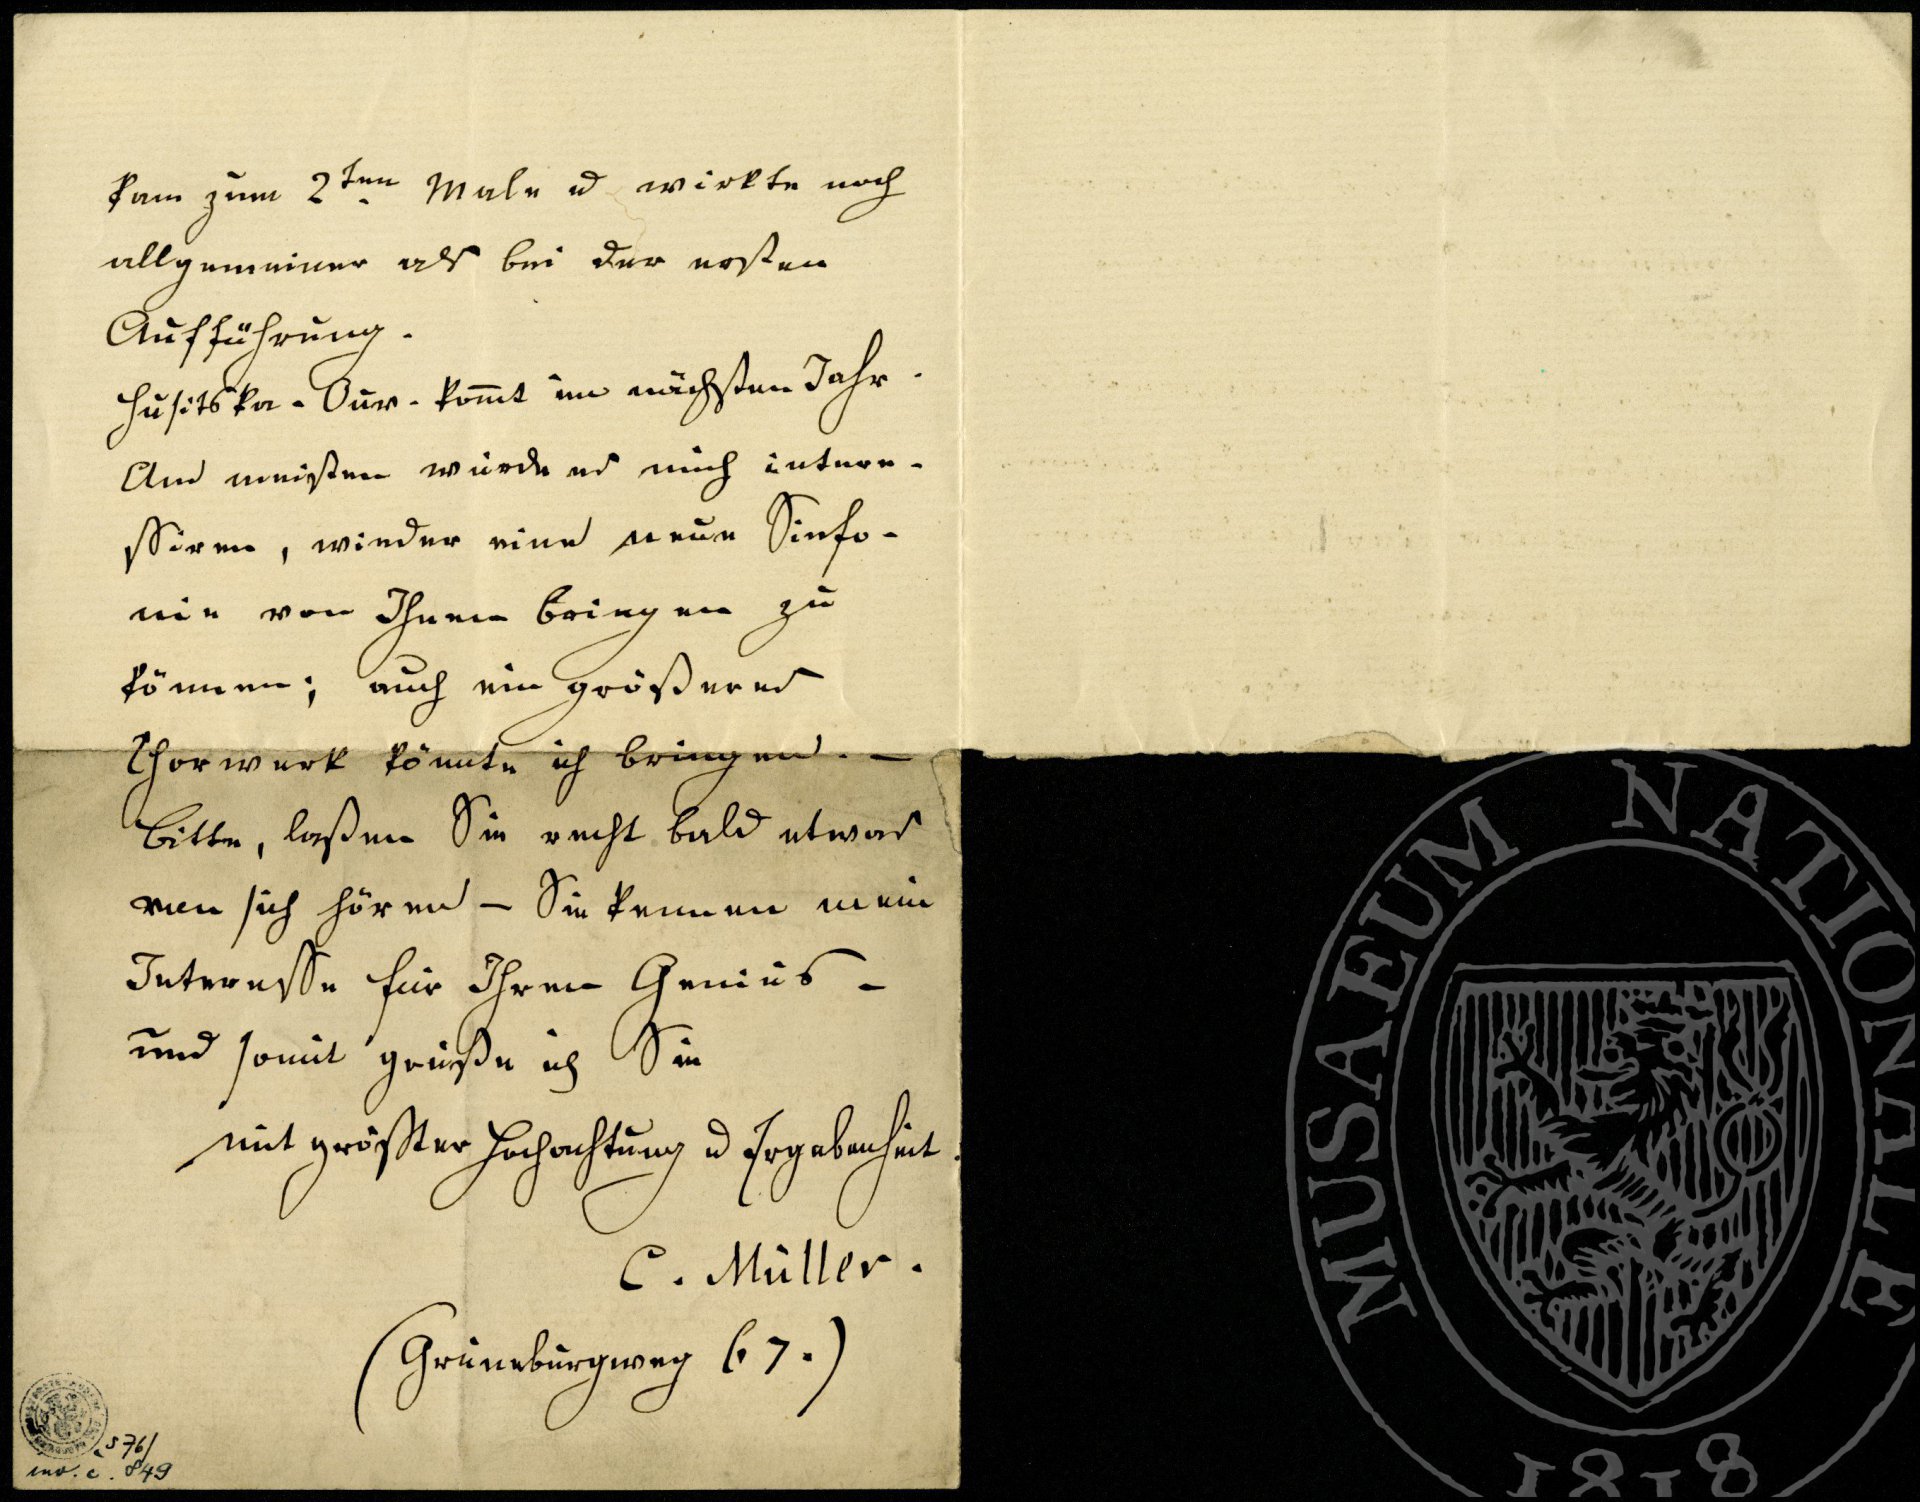 kam zum 2ten Male u wirkte noch
allgemeiner als bei der ersten
Aufführung.
Husitska-Ouv. kom̄t im nächsten Jahr.
Am meisten würde es mich intere-
ssiren, wieder eine neue Sinfo-
nie von Ihnen bringen zu
können; auch ein größeres
Chorwerk könnte ich bringen. —
Bitte, laßen Sie recht bald etwas
von sich hören — Sie kennen mein
Interesse für Ihren Genius —
und somit grüße ich Sie
mit grösster Hochachtung u Ergebenheit.
C. Müller.
(Grüneburgweg 67.)
S 76/
inv. č. 849
MUSAEUM NATIONALE
1818